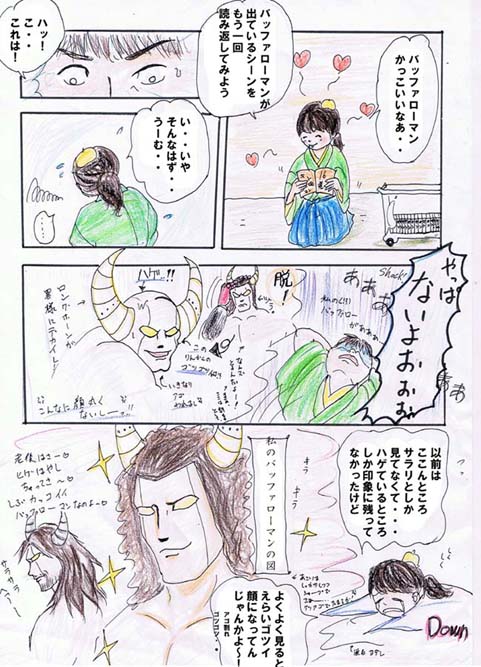 バッファローマン
かっこいいなあ・・
バッファローマンが
出ているシーンを
もう一回
読み返してみよう
ハッ！
こ・・・
これは！
い・・・いや
そんなはず・・
うーむ・・
・・・
やっぱ
ないよおぉぉ
ああぁ
Shock!
私の
バッファロー
があああ
脱！
ハゲ・・!!
ロングホーンが
異様にデカイし！
この
いきなり
アゴ
われまして
こんなに顔丸く
ないしーッ!!
以前は
ここんところ
サラリとしか
見てなくて・・・
ハゲているところ
しか印象に残って
なかったけど
Down
キラ
キラ
私のバッファローマンの図
よくよく見ると
えらいゴツイ
顔になってん
じゃんかよ～！
アゴ割れ
ゴツゴツ・・
老後はさー
ヒゲはやし
ちゃってさ～
しぶカッコイイ
バッファローマンなのよー
サラサラ
ヘアー